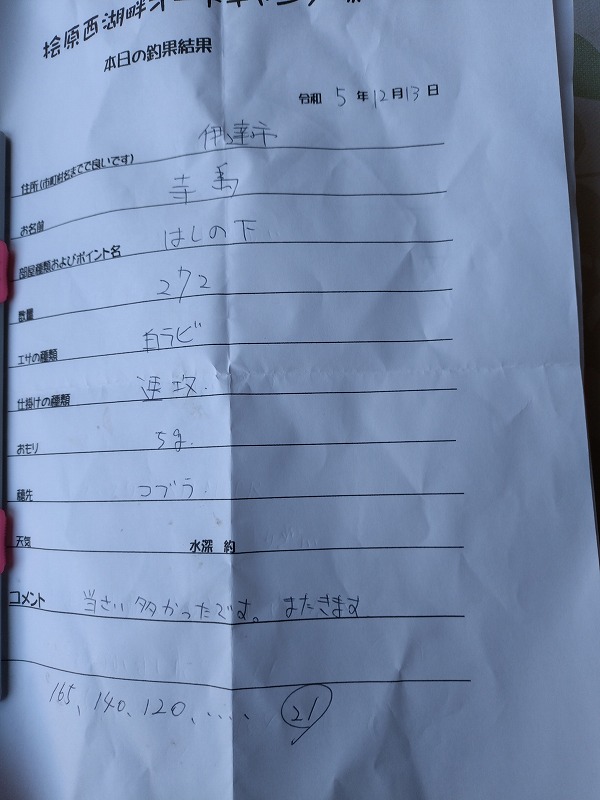 桧原西湖畔オートキャンプ場
本日の釣果結果
令和 5 年 12 月 13 日
住所(市町村名までで良いです) 伊達市
お名前 寺島
部屋種類およびポイント名 はしの下
数量 272
エサの種類 白ラビ
仕掛けの種類 速攻
おもり 5g
穂先 コブラ
天気 水深 約
コメント 当たり多かったです。またきます
165、140、120、‥‥ 21